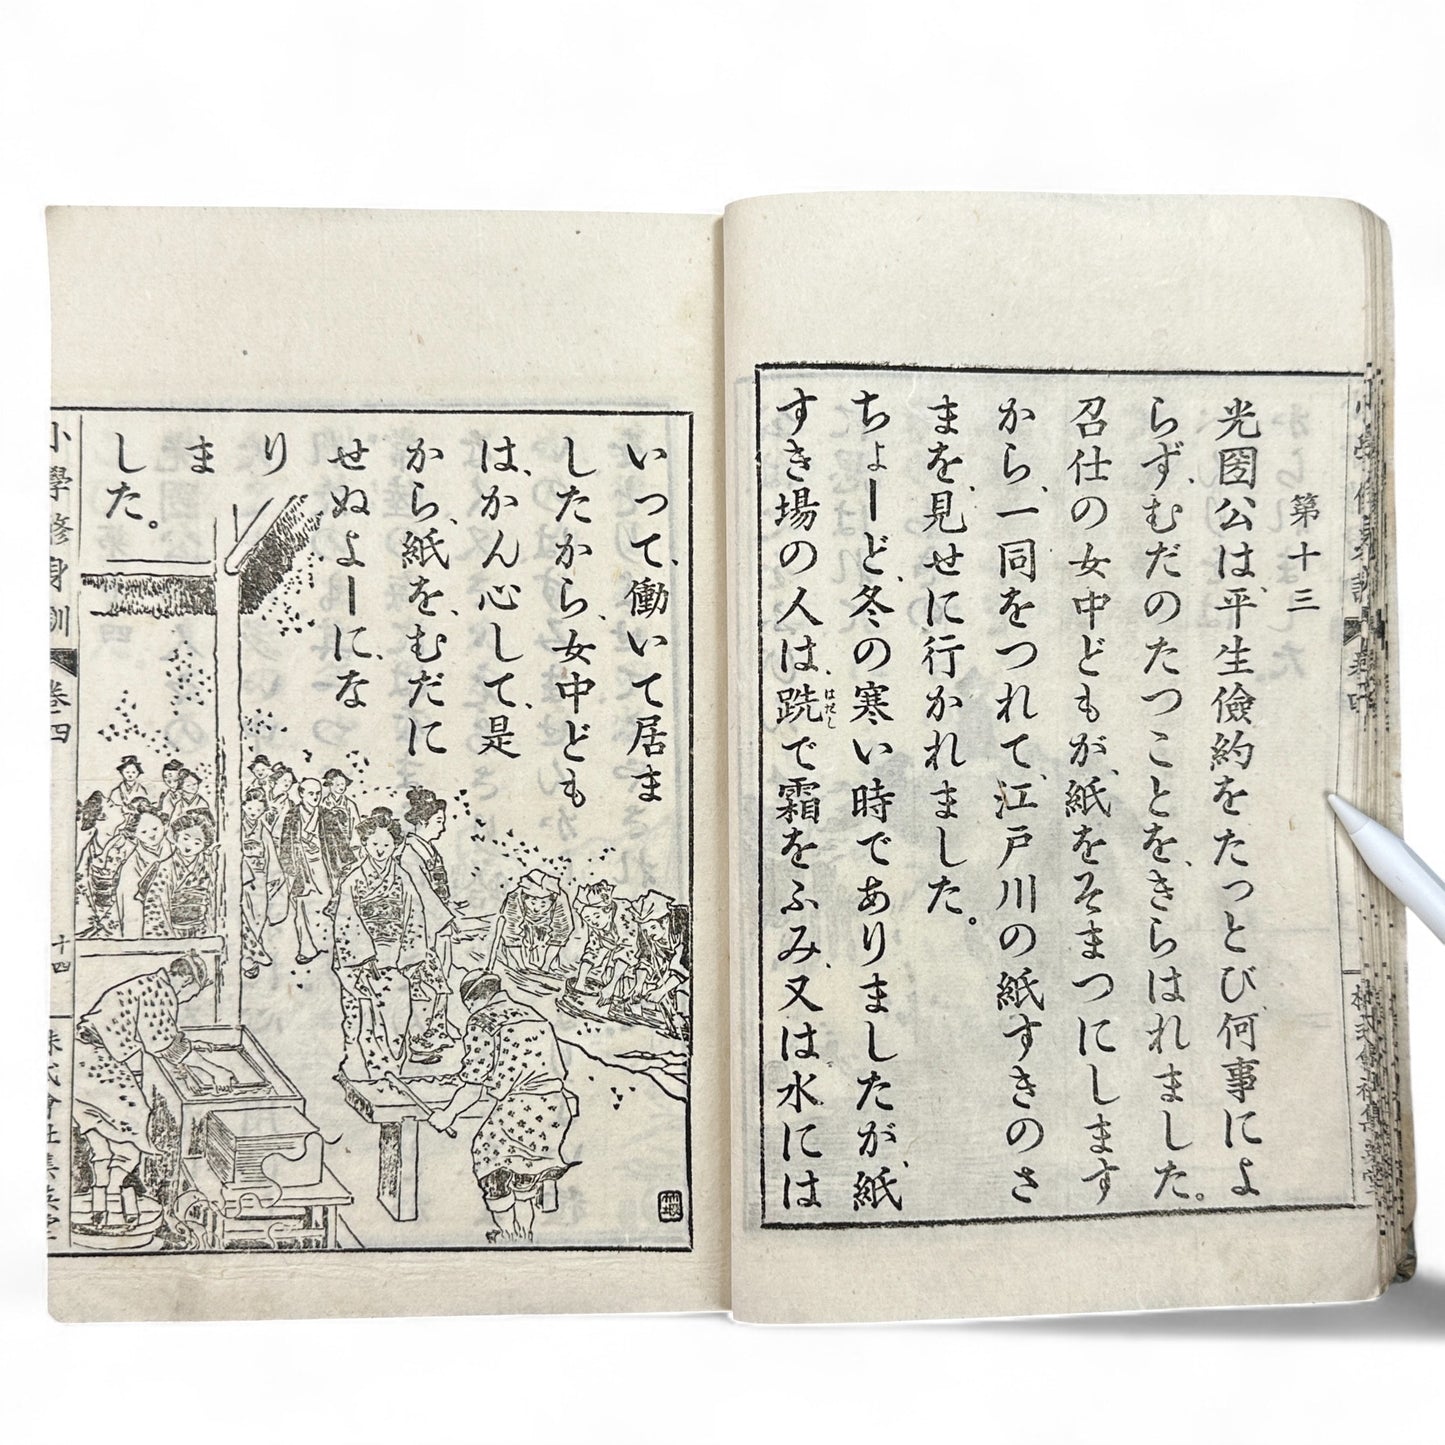 第十三
光圀公は、平生儉約をたっとび、何事によ
らず、むだのたつことを、きらはれました。
召仕の女中どもが、紙をそまつにします
から、一同をつれて、江戸川の紙すきのさ
まを、見せに行かれました。
ちょーど、冬の寒い時でありましたが、紙
すき場の人は、跣で霜をふみ、又は水には
はだし
いって、働いて居ま
したから、女中ども
は、かん心して、是
から、紙を、むだに
せぬよーに、な
り
ま
した。
小學修身訓
卷四
十四
株式會社集英堂